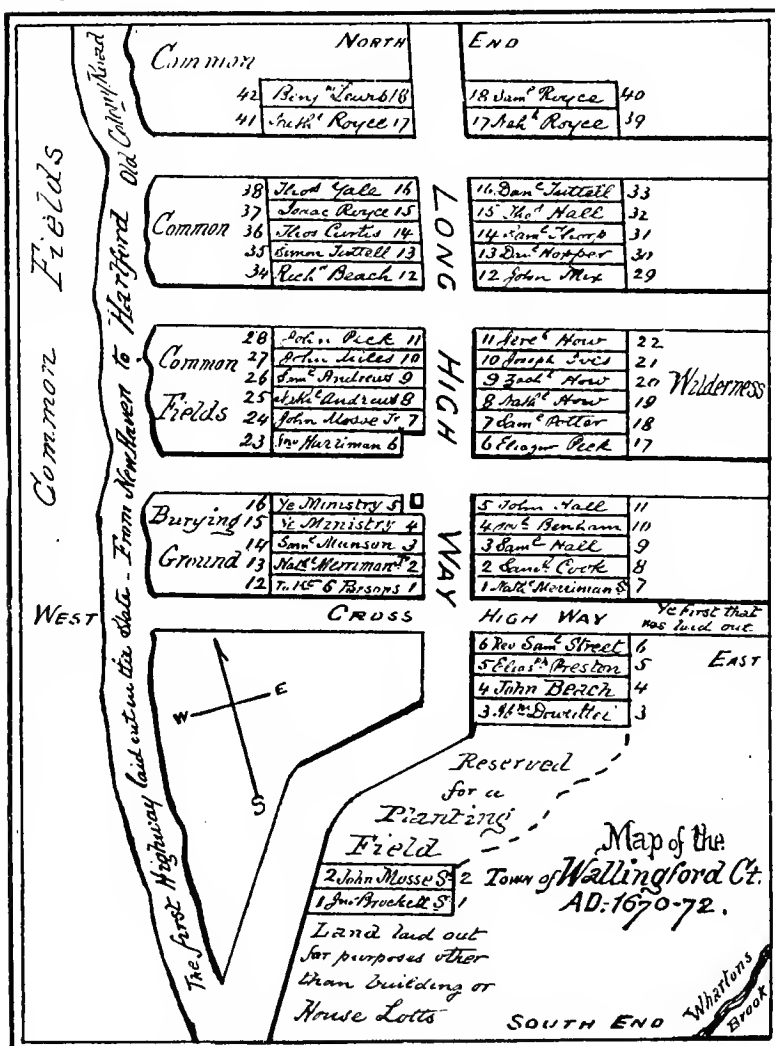 NORTH END
Common
42 Benj^m Lewis 18
18 Sam^l Royce 40
41 Royce 17
17 Neh^h Royce 39
Common Fields
The first Highway laid out in the State - From New Haven to Hartford Old Colony Road
Common
38 Thos Yale 16
37 Isaac Royce 15
36 Thos Curtis 14
35 Simon Tuttell 13
34 Rich^d Beach 12
LONG HIGH WAY
16 Dan^l Tuttell 33
15 Tho^s Hall 32
14 Sam^l Thorp 31
13 Dan^l Hopper 30
12 John Mix 29
Common Fields
28 John Peck 11
27 John Miles 10
26 Sam^l Andrews 9
25 Nath^l Andrews 8
24 John Mosse Jr 7
23 Jno Harriman 6
11 Jere^h How 22
10 Joseph Ives 21
9 Zach^h How 20
8 Nath^l How 19
7 Sam^l Potter 18
6 Eleazer Peck 17
Wilderness
Burying Ground
16 Ye Ministry 5
15 Ye Ministry 4
14 Sam^l Munson 3
13 Nath^l Merriman J^r 2
12 6 Parsons 1
5 John Hall 11
4 Benham 10
3 Sam^l Hall 9
2 Sam^l Cook 8
1 Nath^l Merriman S 7
WEST
CROSS HIGH WAY
Ye First that
was laid out
EAST
6 Rev Sam^l Street 6
5 Preston 5
4 John Beach 4
3 3
W E
S
Reserved
for a
Planting
Field
2 John Mosse S^r 2
1 Jn^o Brockett S 1
Land laid out
for purposes other
than building or
House Lotts
Map of the
Town of Wallingford Ct.
AD: 1670-72.
SOUTH END
Whartons
Brook